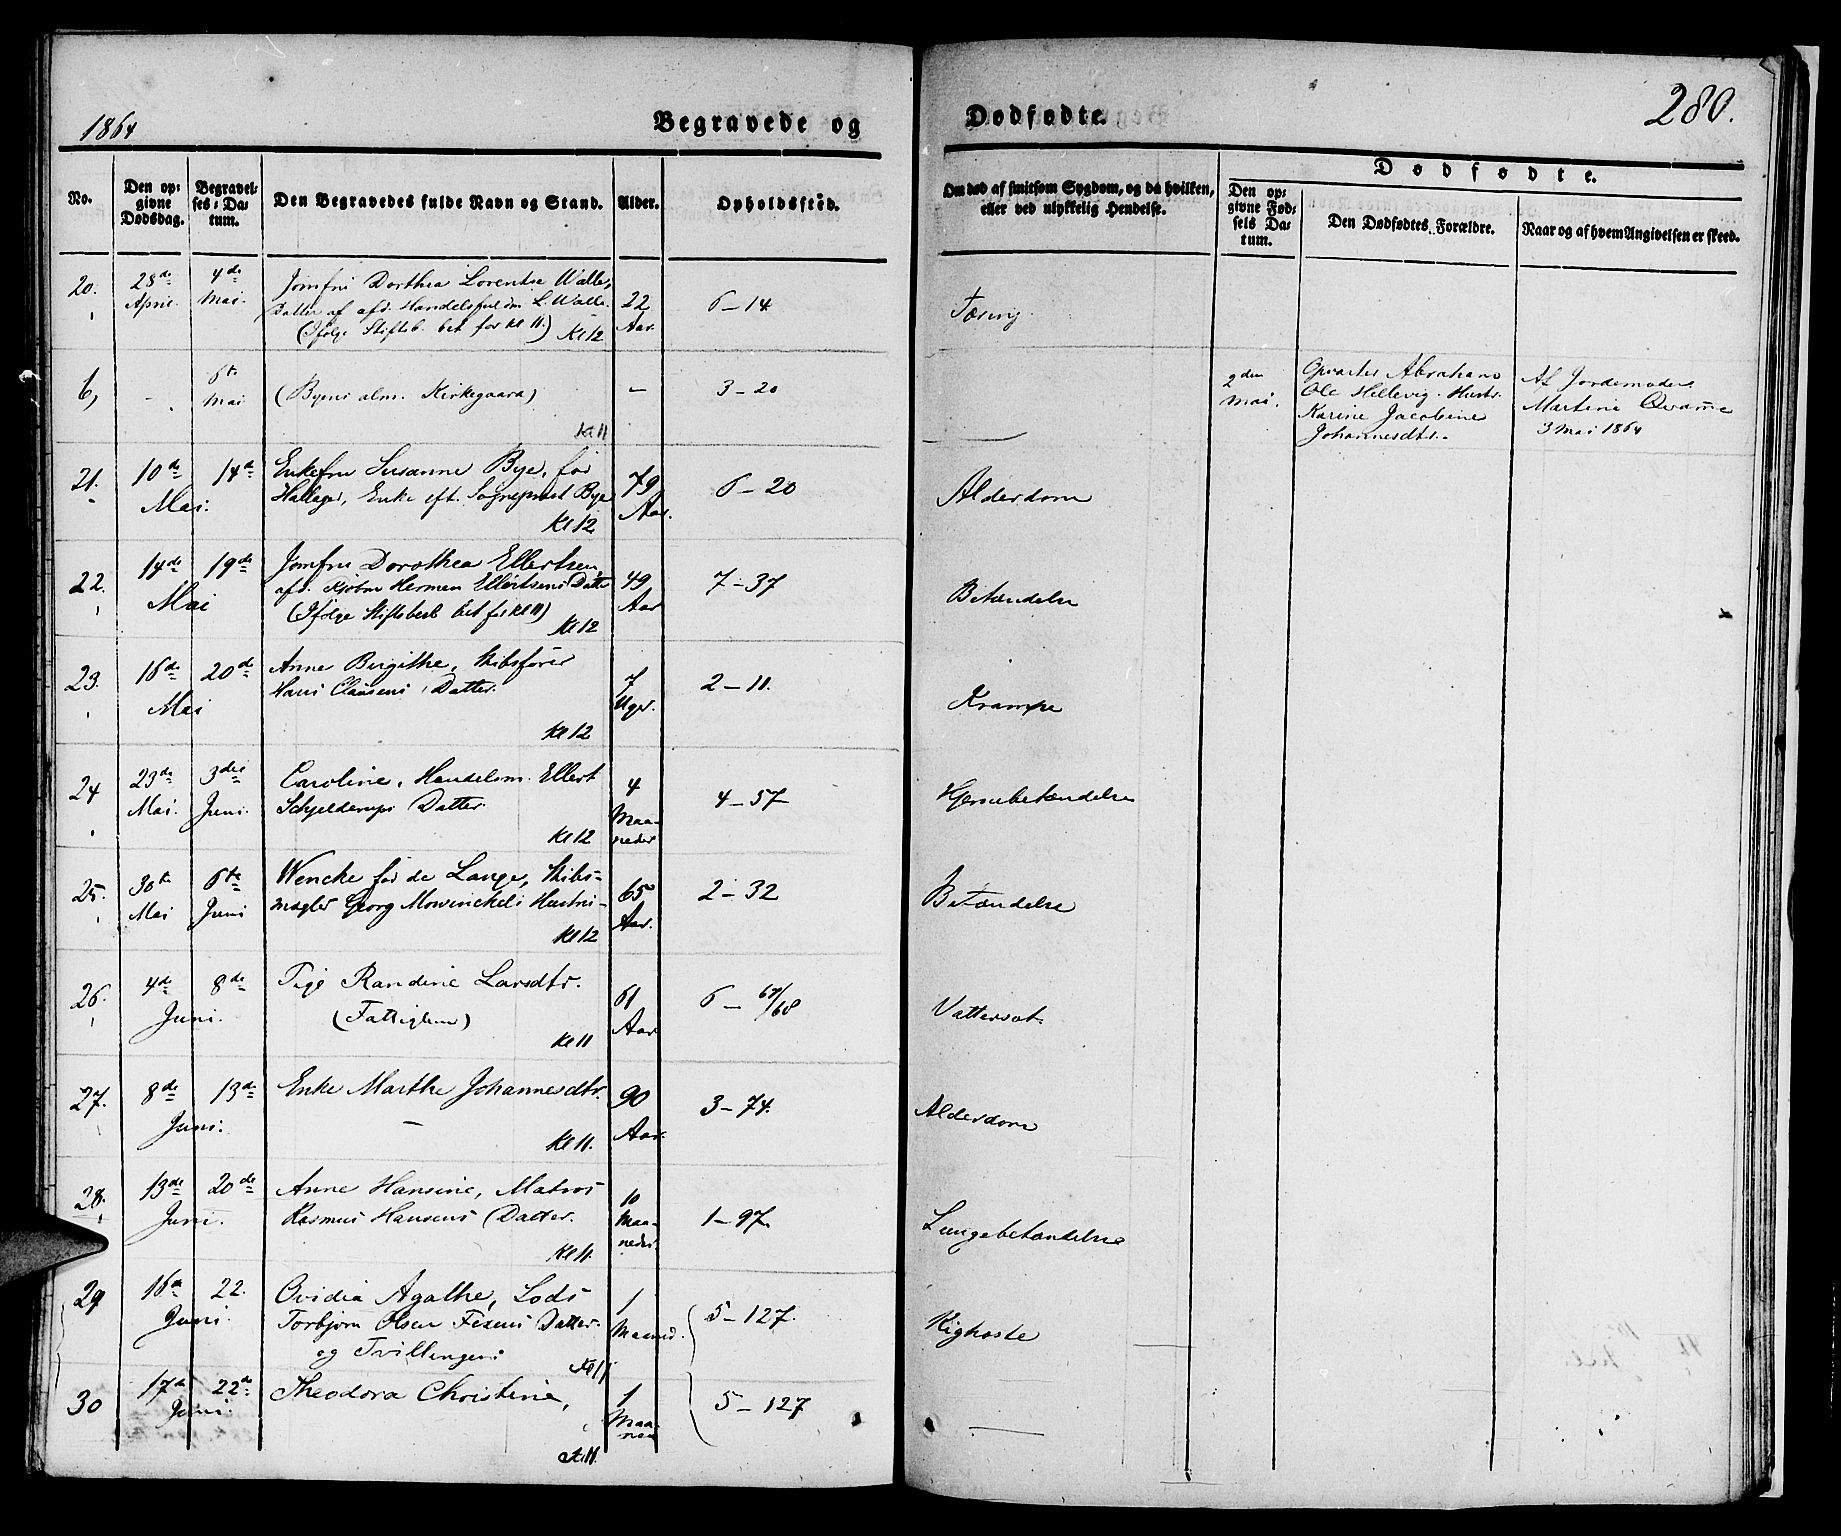 1864
Begravede og
Dødfødte.
280.
No.
Den op=
givne
Dødsdag.
Begravel=
ses=Da=
tum.
Den Begravedes fulde Navn og Stand.
Alder.
Opholdssted.
Om død af smitsom Sygdom, og da hvilken,
eller ved ulykkelig Hendelse.
Dødfødte.
Den op=
givne Fød=
sels Da=
tum.
Den Dødfødtes Forældre.
Naar og af hvem Angivelsen er skeed.
20.
28de
April.
4de
Mai.
Jomfru Dorthea Lorentse Walle,
Datter af afd. Handelsfuldm L. Walle.
(Ifølge Stiftsb. bet for Kl 11.) Kl 12
22
Aar.
6-14
Tæring
6,
-
6te
Mai
(Byens alm. Kirkegaard)
Kl 11
-
3-20
2den
Mai.
Opvarter Abraham
Ole Hellevig. Hustr.
Karine Jacobine
Johannesdtr.
Af Jordemoder
Martine Qvamme
3 Mai 1864
21.
10de
14de
Mai.
Enkefru Susanne Bye, før
Hallager, Enke eft. Sogneprest Bye
Kl 12
79
Aar.
6-20
Alderdom
22.
14de
19de
Mai
Jomfru Dorothea Ellertsen,
afd. Kjøbm Herman Ellertsens Datter
(Ifølge Stiftsbesl. bet for Kl 11)
Kl 12
49
Aar
7-37
Betændelse
23.
16de
20de
Mai
Anne Birgithe, Skibsfører
Hans Clausens Datter.
Kl 12
7
Uger.
2-11.
Krampe
24
23de
Mai.
3die
Juni.
Caroline, Handelsm. Ellert
Schjelderups Datter.
Kl 12
4
Maa-
neder
4-57
Hjernebetændelse
25.
30te
Mai
6te
Juni
Wencke før de Lange, Skibs=
mægler Georg Mowinckels Hustru-
Kl 12
65
Aar.
2-32
Betændelse
26.
4de
8de
Juni.
Randine Larsdtr.
Kl 11
61
Aar
6-67/68
Vattersot.
27.
8de
13de
Juni.
Enke Marthe Johannesdtr.
-
Kl 11.
90
Aar.
3-74.
Alderdom
28.
13de
20de
Juni.
Anne Hansine, Matros
Rasmus Hansens Datter.
Kl 11.
10
Maa-
neder.
1-97.
Lungebetændelse
29
16de
22.
Juni.
Ovidia Agathe, Lods
Torbjørn Olsen Datter.
og Tvillingen
Kl 11
1
Maaned.
5-127.
Kighoste
30
17de
22de
Juni.
Theodora Christine,
Kl 11.
1
Maa-
ned
5-127